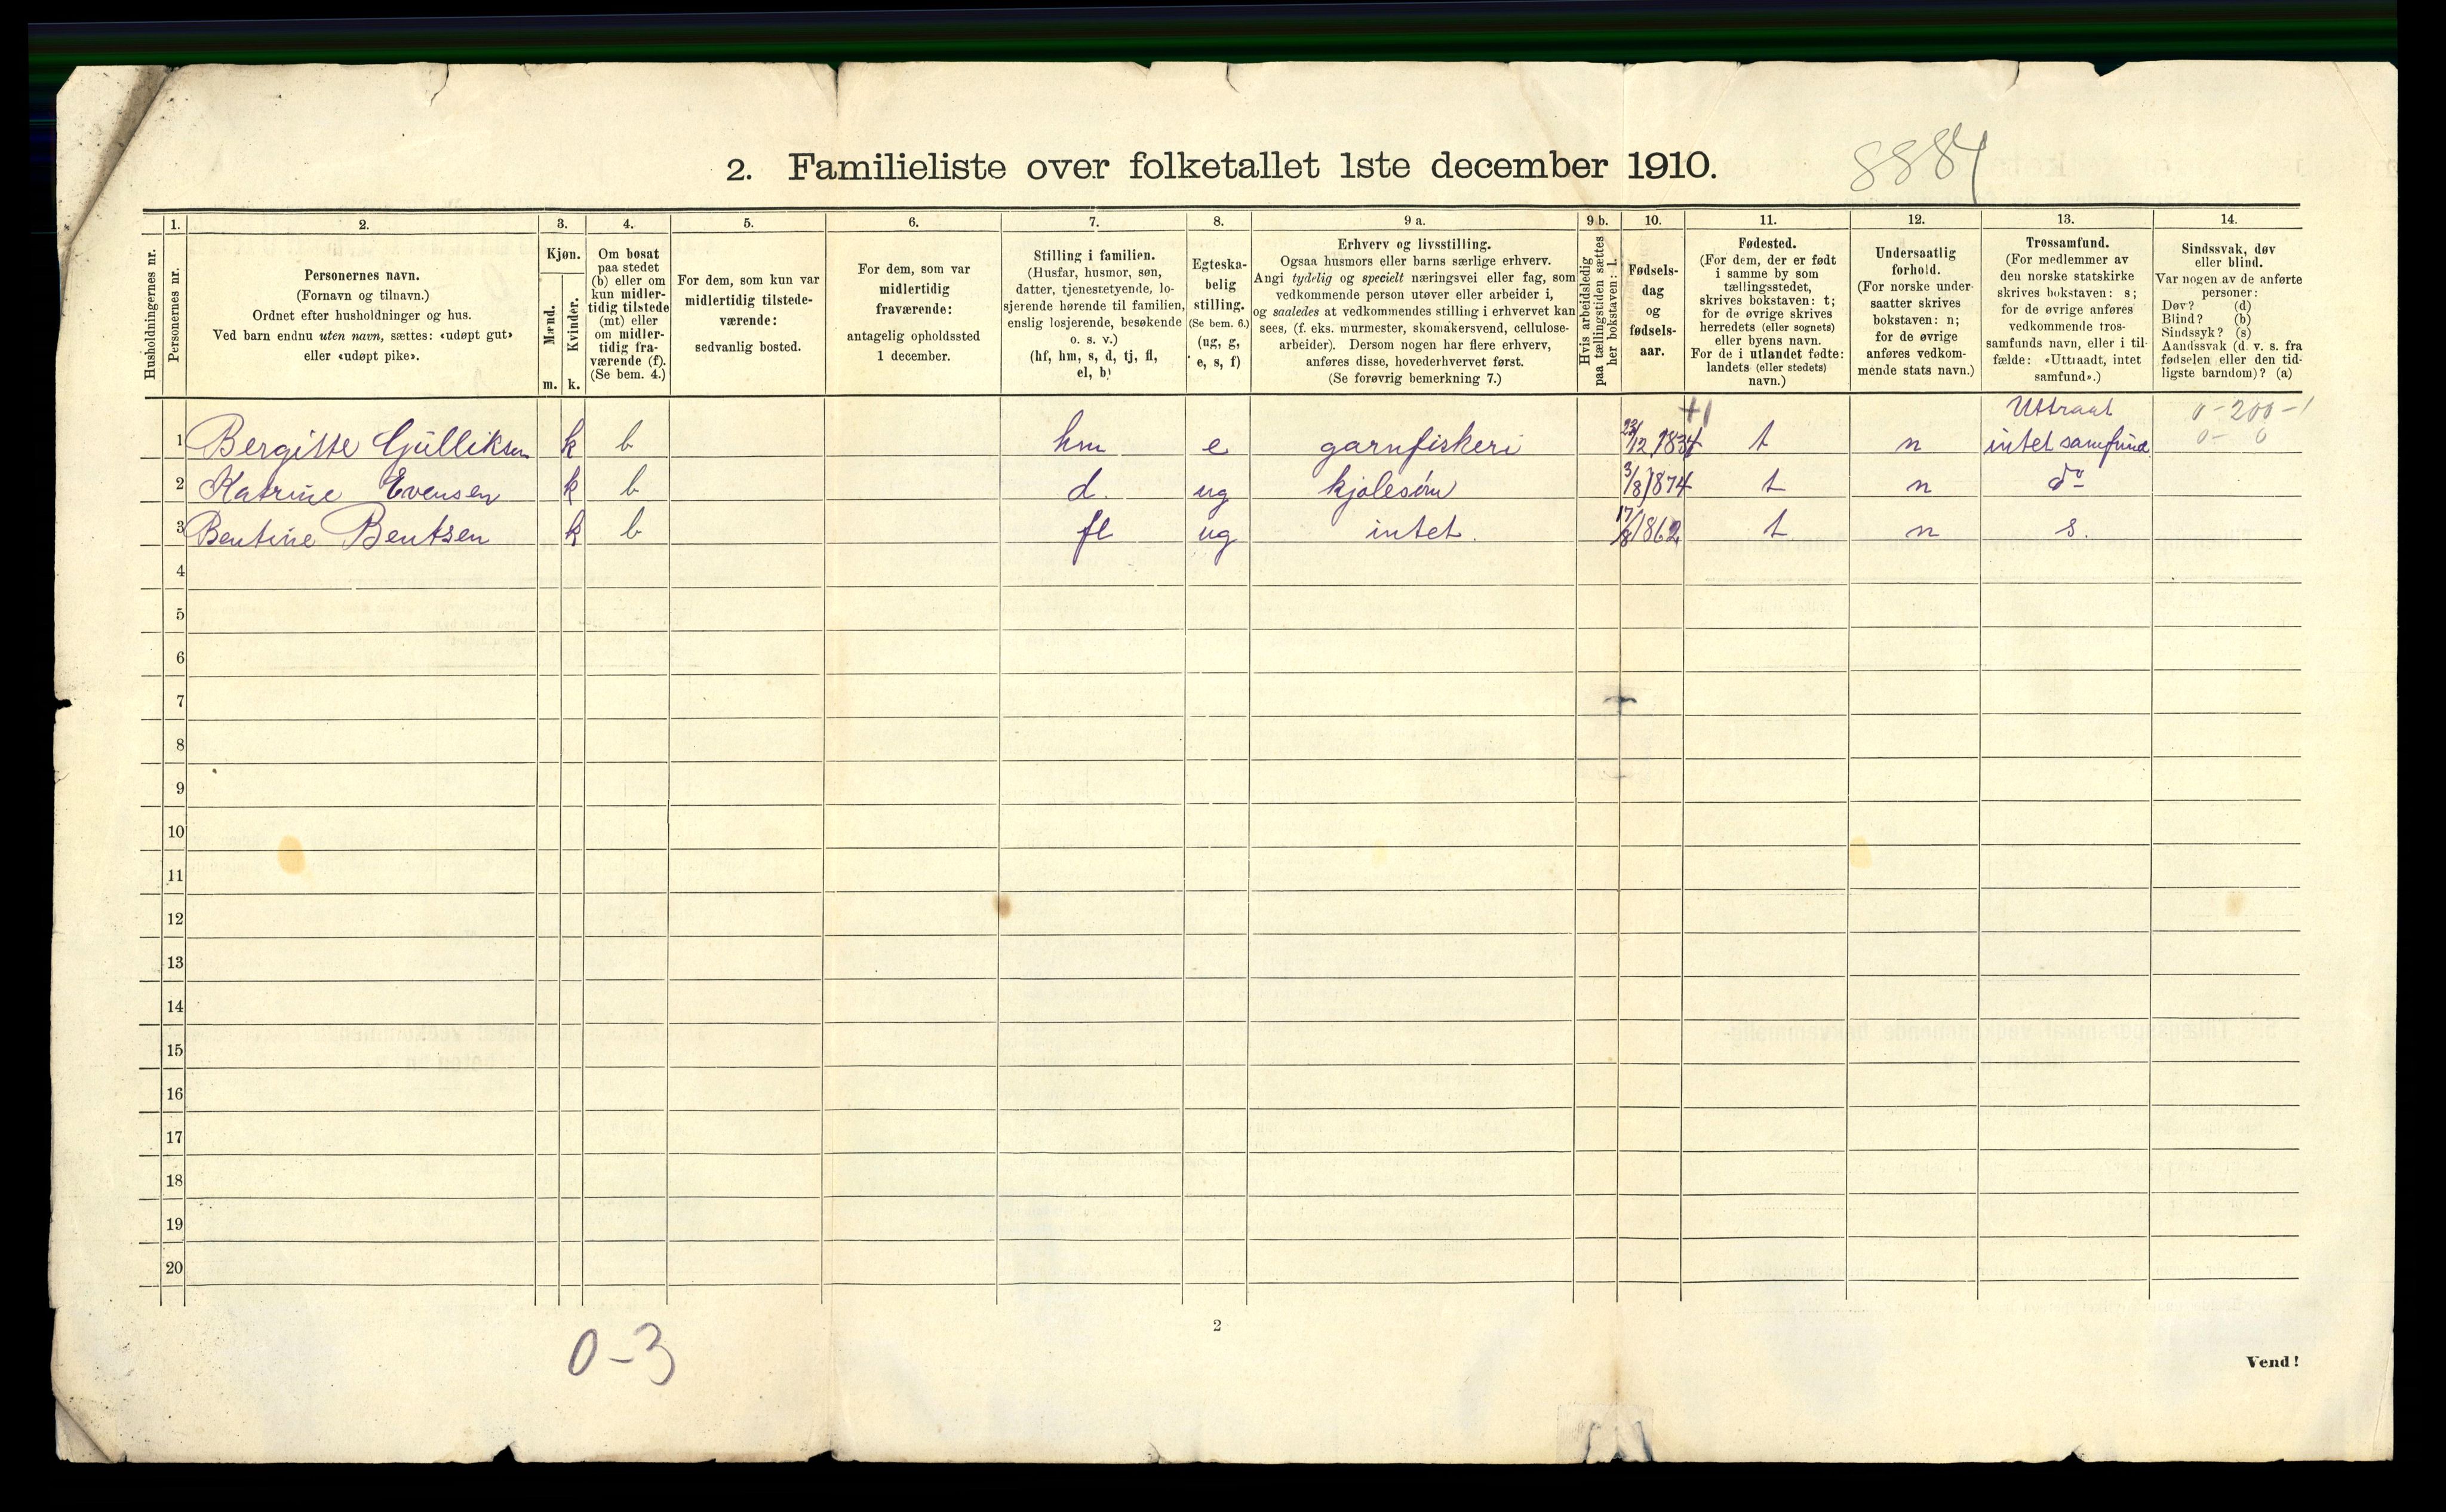 2. Familieliste over folketallet 1ste december 1910.
8884
Husholdningernes nr.
1.
Personernes nr.
2.
Personernes navn.
(Fornavn og tilnavn.)
Ordnet efter husholdninger og hus.
Ved barn endnu uten navn, sættes: «udøpt gut»
eller «udøpt pike».
3.
Kjøn.
Mænd.
Kvinder.
m. k.
4.
Om bosat
paa stedet
(b) eller om
kun midler-
tidig tilstede
(mt) eller
om midler-
tidig fra-
værende (f).
(Se bem. 4.)
5.
For dem, som kun var
midlertidig tilstede-
værende:
sedvanlig bosted.
6.
For dem, som var
midlertidig
fraværende:
antagelig opholdssted
1 december.
7.
Stilling i familien.
(Husfar, husmor, søn,
datter, tjenestetyende, lo-
sjerende hørende til familien,
enslig losjerende, besøkende
o. s. v.)
(hf, hm, s, d, tj, fl,
el, b)
8.
Egteska-
belig
stilling.
(Se bem. 6.)
(ug, g,
e, s, f)
9 a.
Erhverv og livsstilling.
Ogsaa husmors eller barns særlige erhverv.
Angi tydelig og specielt næringsvei eller fag, som
vedkommende person utøver eller arbeider i,
og saaledes at vedkommendes stilling i erhvervet kan
sees, (f. eks. murmester, skomakersvend, cellulose-
arbeider). Dersom nogen har flere erhverv,
anføres disse, hovederhvervet først.
(Se forøvrig bemerkning 7.)
9 b.
Hvis arbeidsledig
paa tællingstiden sættes
her bokstaven: l.
10.
Fødsels-
dag
og
fødsels-
aar.
11.
Fødested.
(For dem, der er født
i samme by som
tællingsstedet,
skrives bokstaven: t;
for de øvrige skrives
herredets (eller sognets)
eller byens navn.
For de i utlandet fødte:
landets (eller stedets)
navn.)
12.
Undersaatlig
forhold.
(For norske under-
saatter skrives
bokstaven: n;
for de øvrige
anføres vedkom-
mende stats navn.)
13.
Trossamfund.
(For medlemmer av
den norske statskirke
skrives bokstaven: s;
for de øvrige anføres
vedkommende tros-
samfunds navn, eller i til-
fælde: «Uttraadt, intet
samfund».)
14.
Sindssvak, døv
eller blind.
Var nogen av de anførte
personer:
Døv? (d)
Blind? (b)
Sindssyk? (s)
Aandssvak (d. v. s. fra
fødselen eller den tid-
ligste barndom)? (a)
+1 Uttraat 0-200-1
1 Bergitte Gulliksen k b hm e garnfiskeri 23/12 1834 t n intet samfund 0- 0
2 Katrine Evensen k b d. ug kjolesøm 3/8 1874 t n do
3 Bentine Bentsen k b fl ug intet. 17/8 1862 t n s.
4
5
6
7
8
9
10
11
12
13
14
15
16
17
18
19
20
0-3
2
Vend!